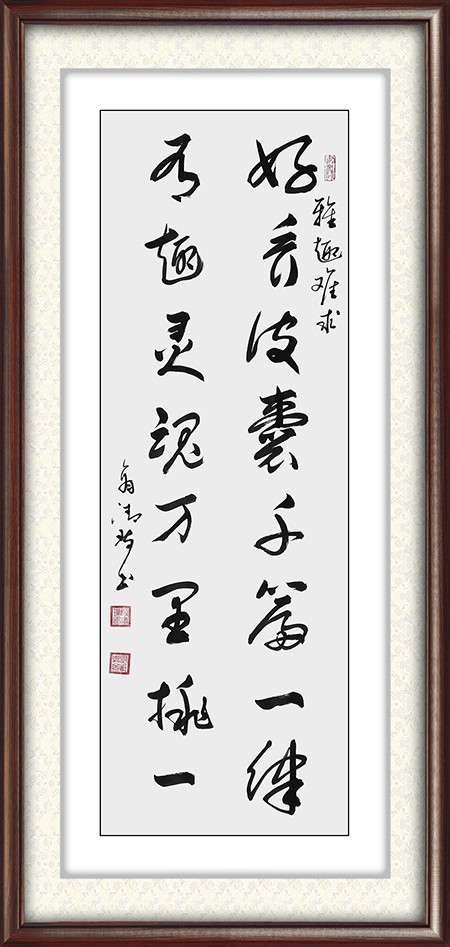 雅趣难求
好看皮囊千篇一律
有趣灵魂万里挑一
翁 书